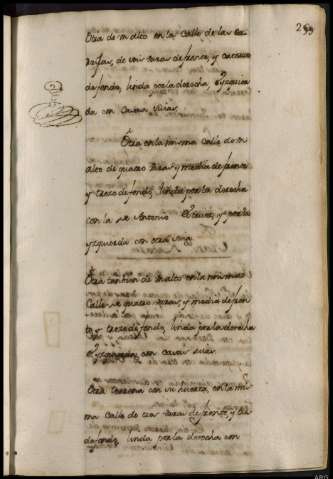 259
Otra de un alto en la Calle de las
de seis varas de frente, y catorce
de fondo, linda por la derecha, Yzquier
da con Casas suias.
Otra en la misma Calle de un
alto de quatro varas y media de frente
y trece de fondo, linda por la derecha
con la de Antonio y por la
yzquierda con otra suia
Otra tambien de un alto en la misma
Calle de quatro varas, y media de fren
te y trece de fondo, linda por la derecha
Yzquierda con Casas suias.
Otra terrena con su en la mis
ma Calle de tres varas de frente, y
de fondo, linda por la derecha con